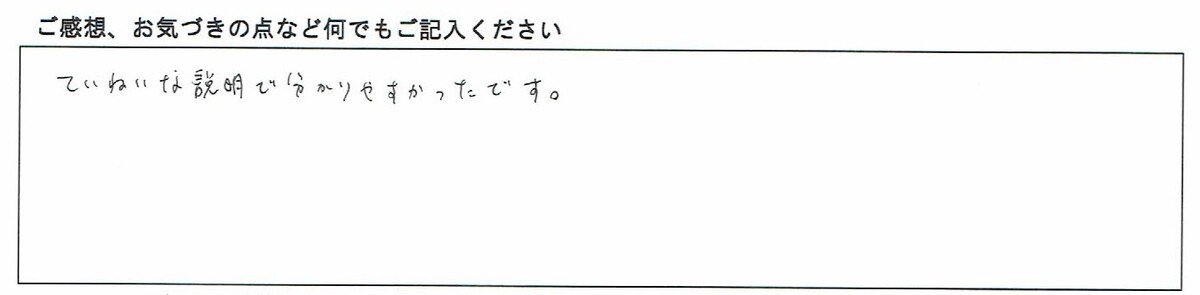 ご感想、お気づきの点など何でもご記入ください
ていねいな説明で分かりやすかったです。